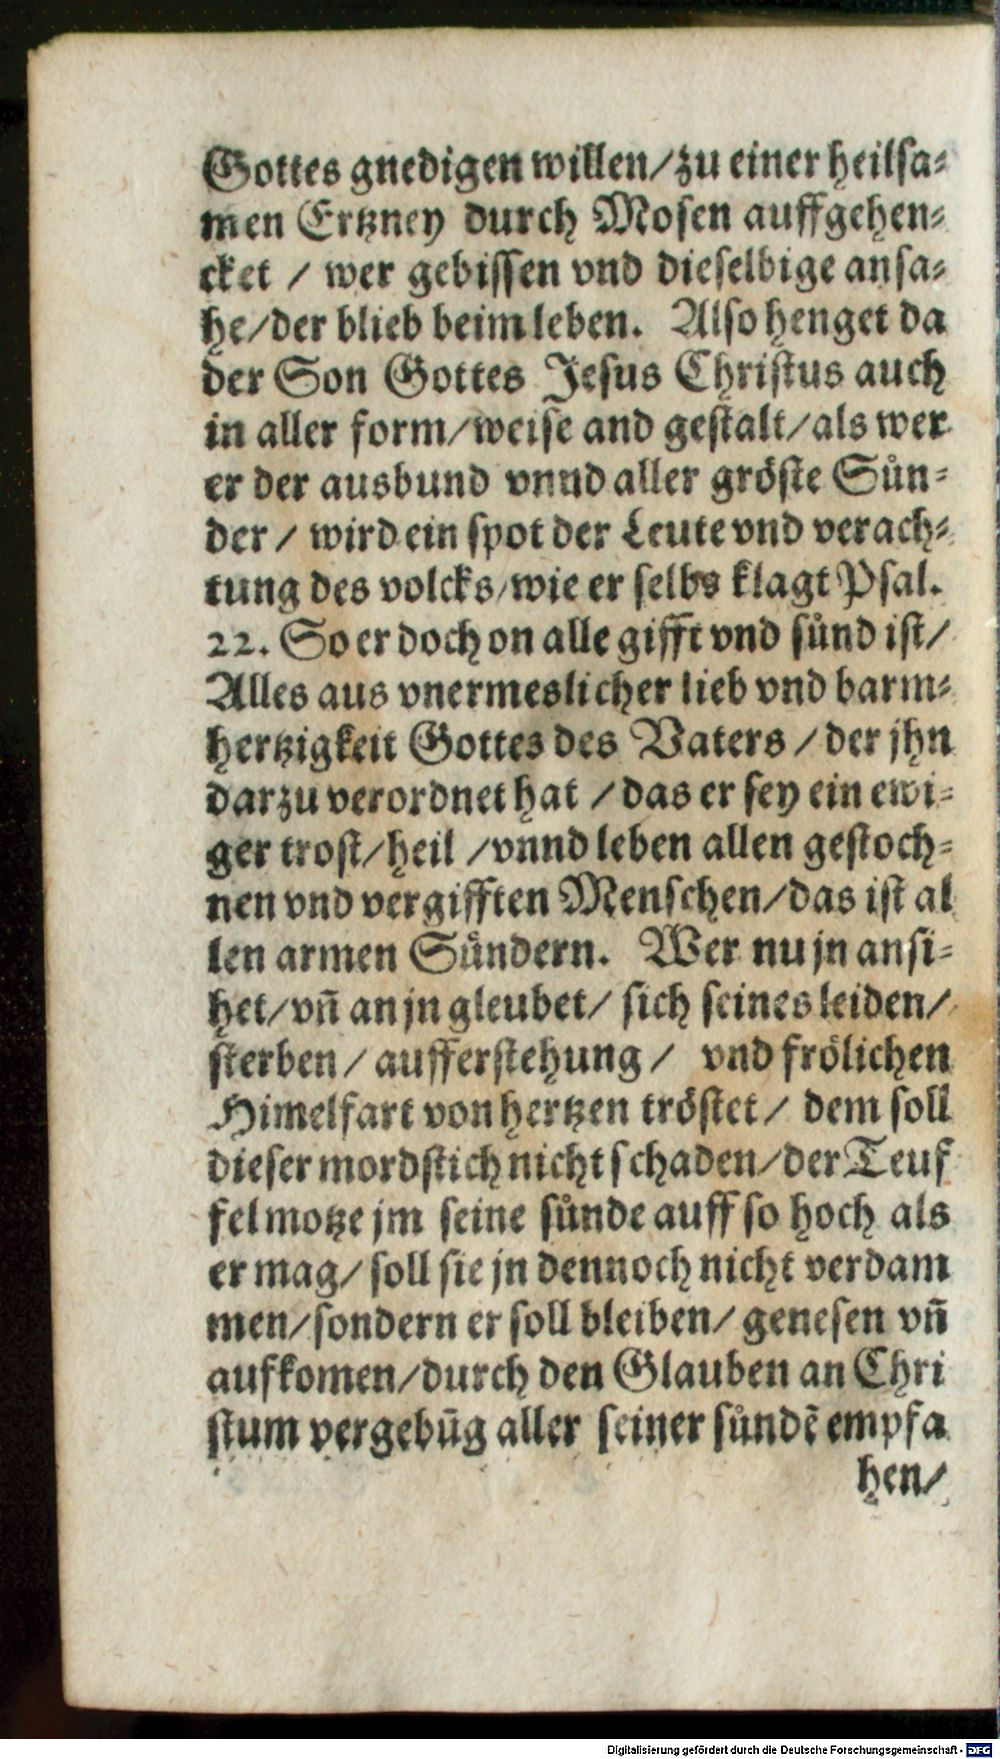 Gottes gnedigen willen/zu einer heilsa⸗
men Ertzney durch Mosen auffgehen⸗
cket / wer gebissen vnd dieselbige ansa⸗
he/der blieb beim leben. Also henget da
der Son Gottes Jesus Christus auch
in aller form/weise and gestalt/als wer
er der ausbund vnnd aller gröste Sůn⸗
der / wird ein spot der Leute vnd verach⸗
tung des volcks/wie er selbs klagt Psal.
22. So er doch on alle gifft vnd sůnd ist/
Alles aus vnermeslicher lieb vnd barm⸗
hertzigkeit Gottes des Vaters / der jhn
darzu verordnet hat / das er sey ein ewi⸗
ger trost/heil /vnnd leben allen gestoch⸗
nen vnd vergifften Menschen/das ist al
len armen Sůndern. Wer nu jn ansi⸗
het/vñ an jn gleubet/ sich seines leiden/
sterben / aufferstehung / vnd frölichen
Himelfart von hertzen tröstet / dem soll
dieser mordstich nicht schaden/der Teuf
fel motze jm seine sůnde auff so hoch als
er mag/ soll sie jn dennoch nicht verdam
men/sondern er soll bleiben/ genesen vñ
aufkomen/durch den Glauben an Chri
stum vergebũg aller seiner sůndẽ empfa
hen/
Digitalisierung gefördert durch die Deutsche Forschungsgemeinschaft - DFG